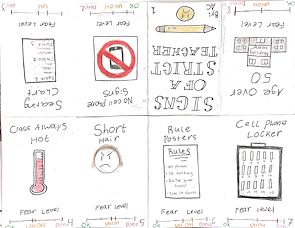 Age Over
50
Fear Level
SIGNS
OF A
STRICT
TEACHER
By:
AC
No cell phone
Signs
Fear Level
Seating
Chart
Fear Level
Class Always
Hot
Fear Level
OK
4
Short
Hair
Fear Level
OK
5
Rule
Posters
Rules
Fear Level
OK
Cell phone
Locker
Fear Level
OK
7